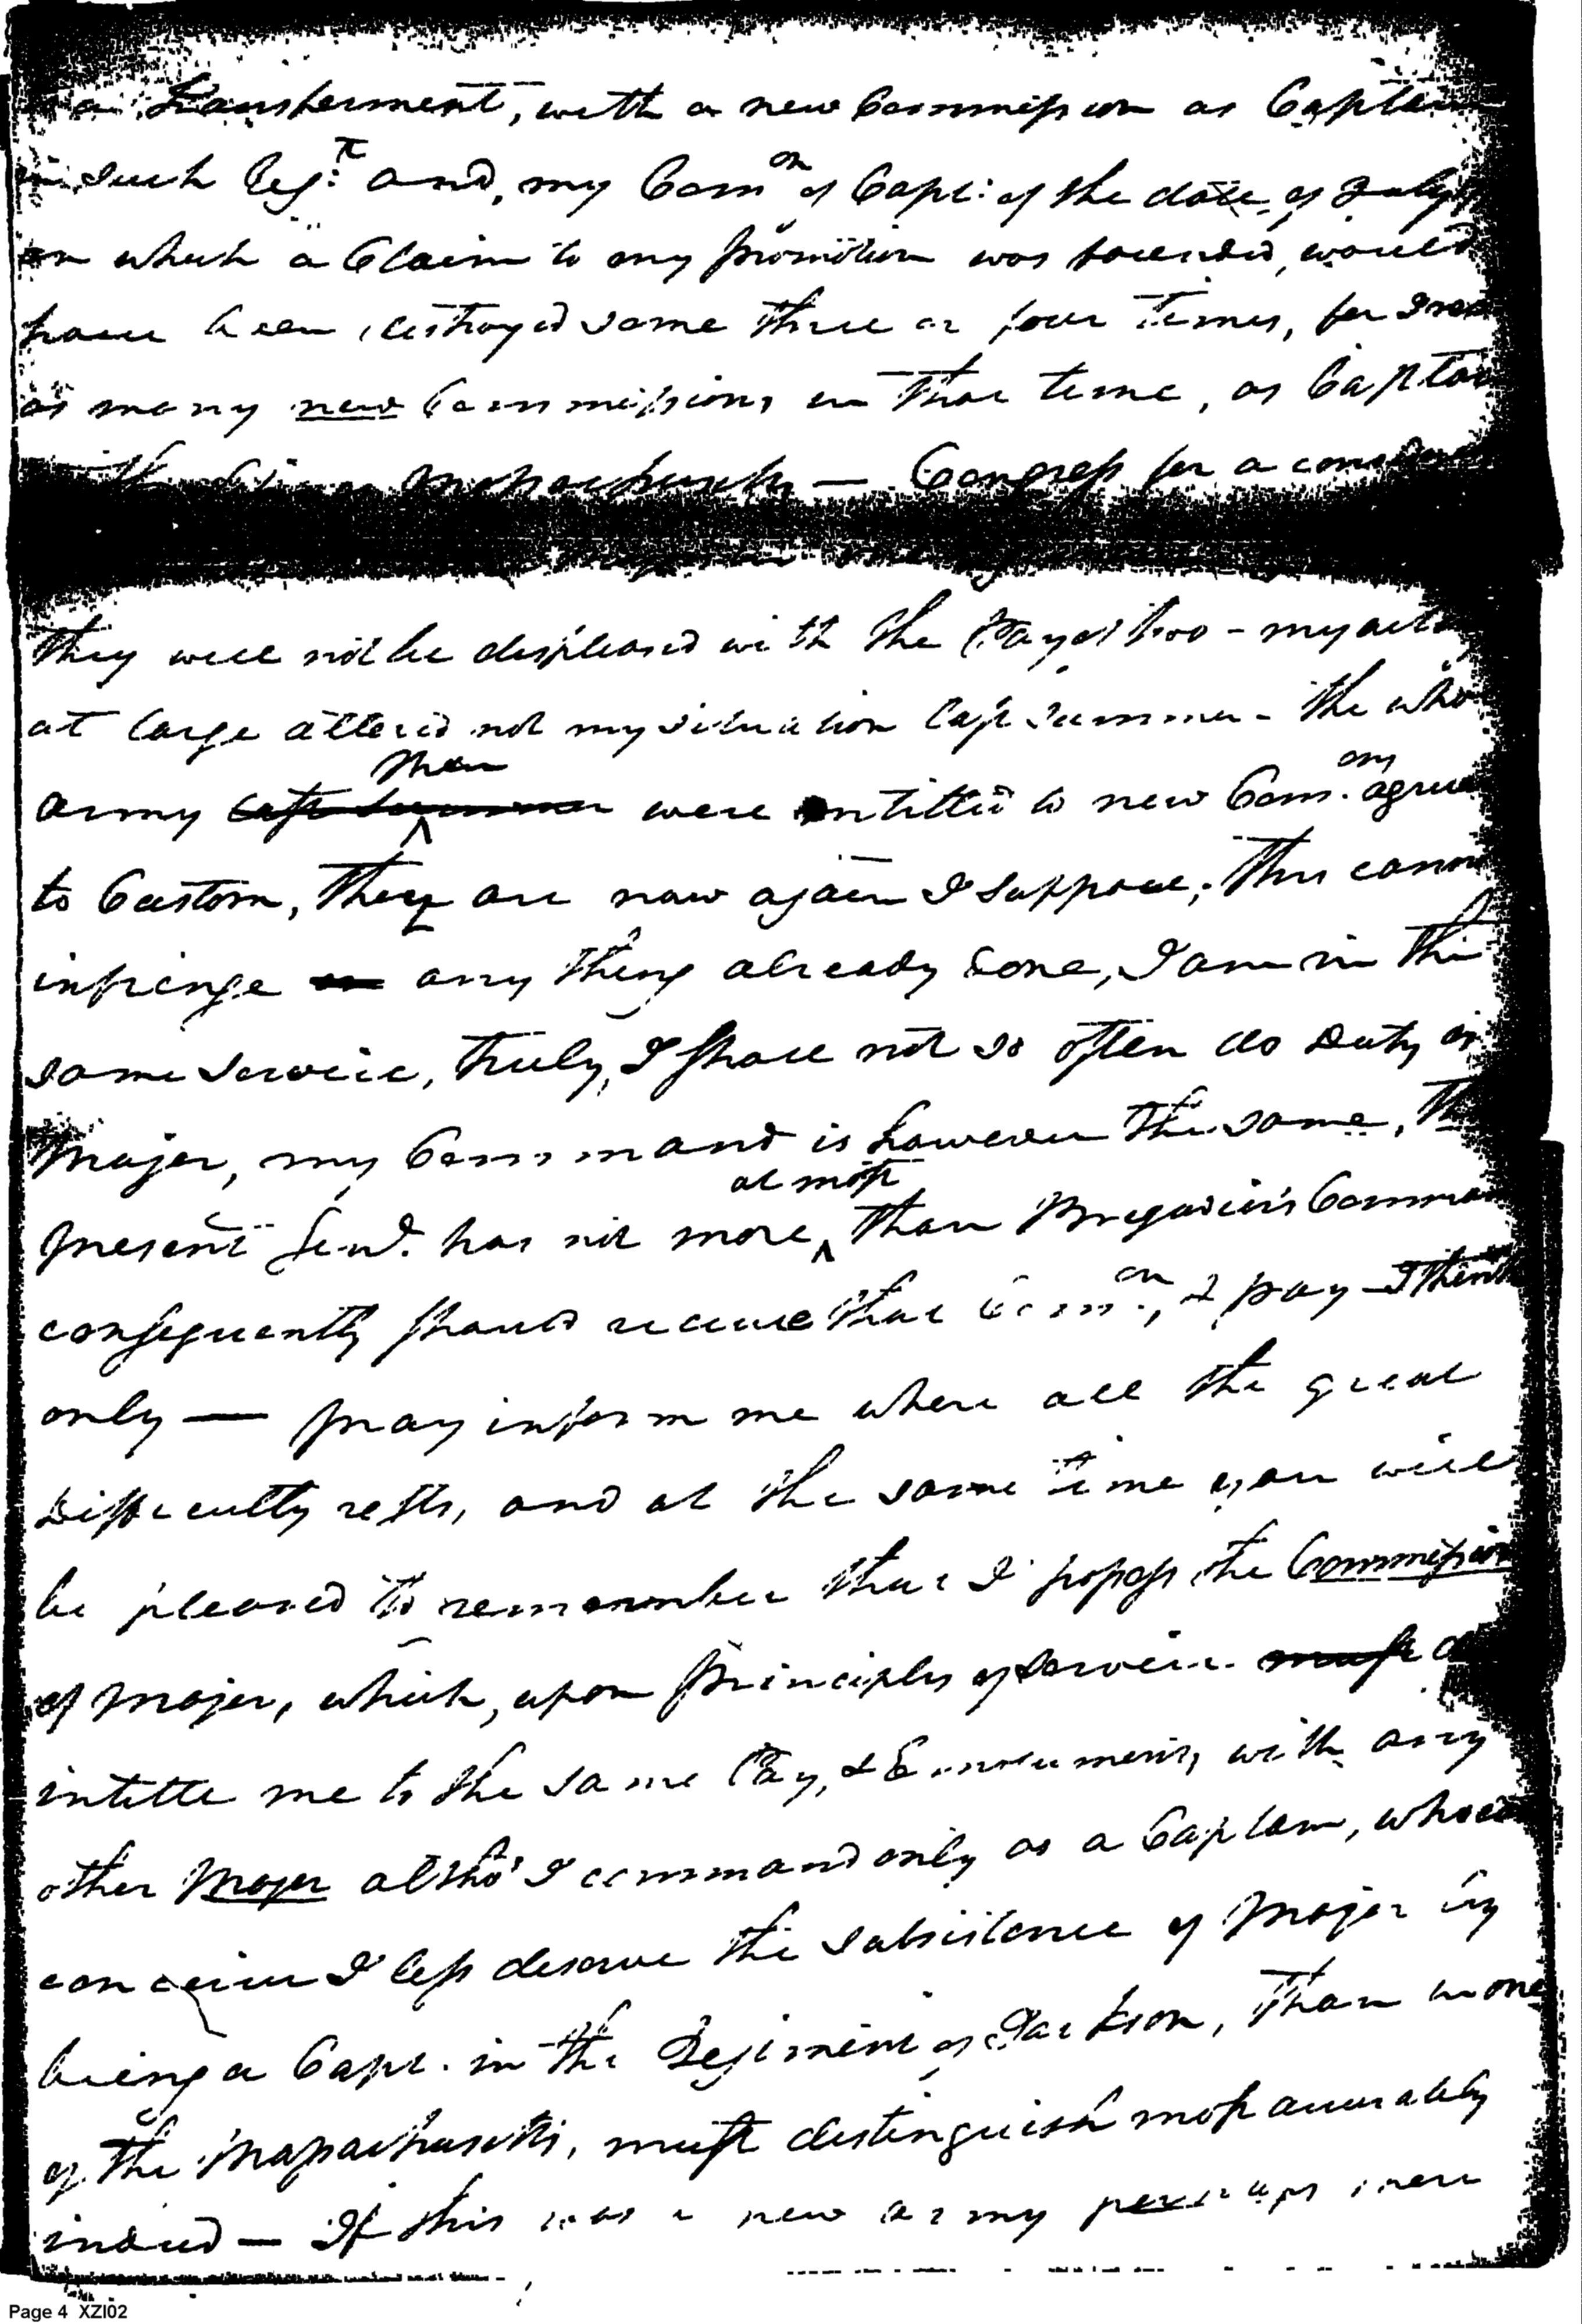 a Transferment, with a new Commission as Captain
in such Reg:t and, my Com:on of Capt: of the date of July
on which a Claim to my promotion was founded, would
have been destroyed some three or four times, for I
as many new Commissions in that time, as
Massachusetts — Congress for a
they will not be displeased with the too - my
at large altered not my situation last summer - the who
army then were intitled to new Com:ons agree
to Custom, they are now again I suppose; this
infringe any thing already done, I am in the
same service, truly, I shall not so often do Duty as
Major, my Command is however the same, Th
present Gen.l has not more at most than Brigadier's
consequently should receive that Com:on, & pay - I think
only — may inform me where all the great
Difficulty rests, and at the same time you will
be pleased to remember that I possess the Commission
of Major, which, upon principles of service
intitle me to the same Pay, & Emoluments, with any
other Major altho' I command only as a Captain,
conceive I less deserve the subsistence of Major by
being a Capt. in the Regiment of Jackson, than in one
of the Massachusetts, must distinguish most accurately
indeed — If this was a new army perhaps
Page 4 XZI02